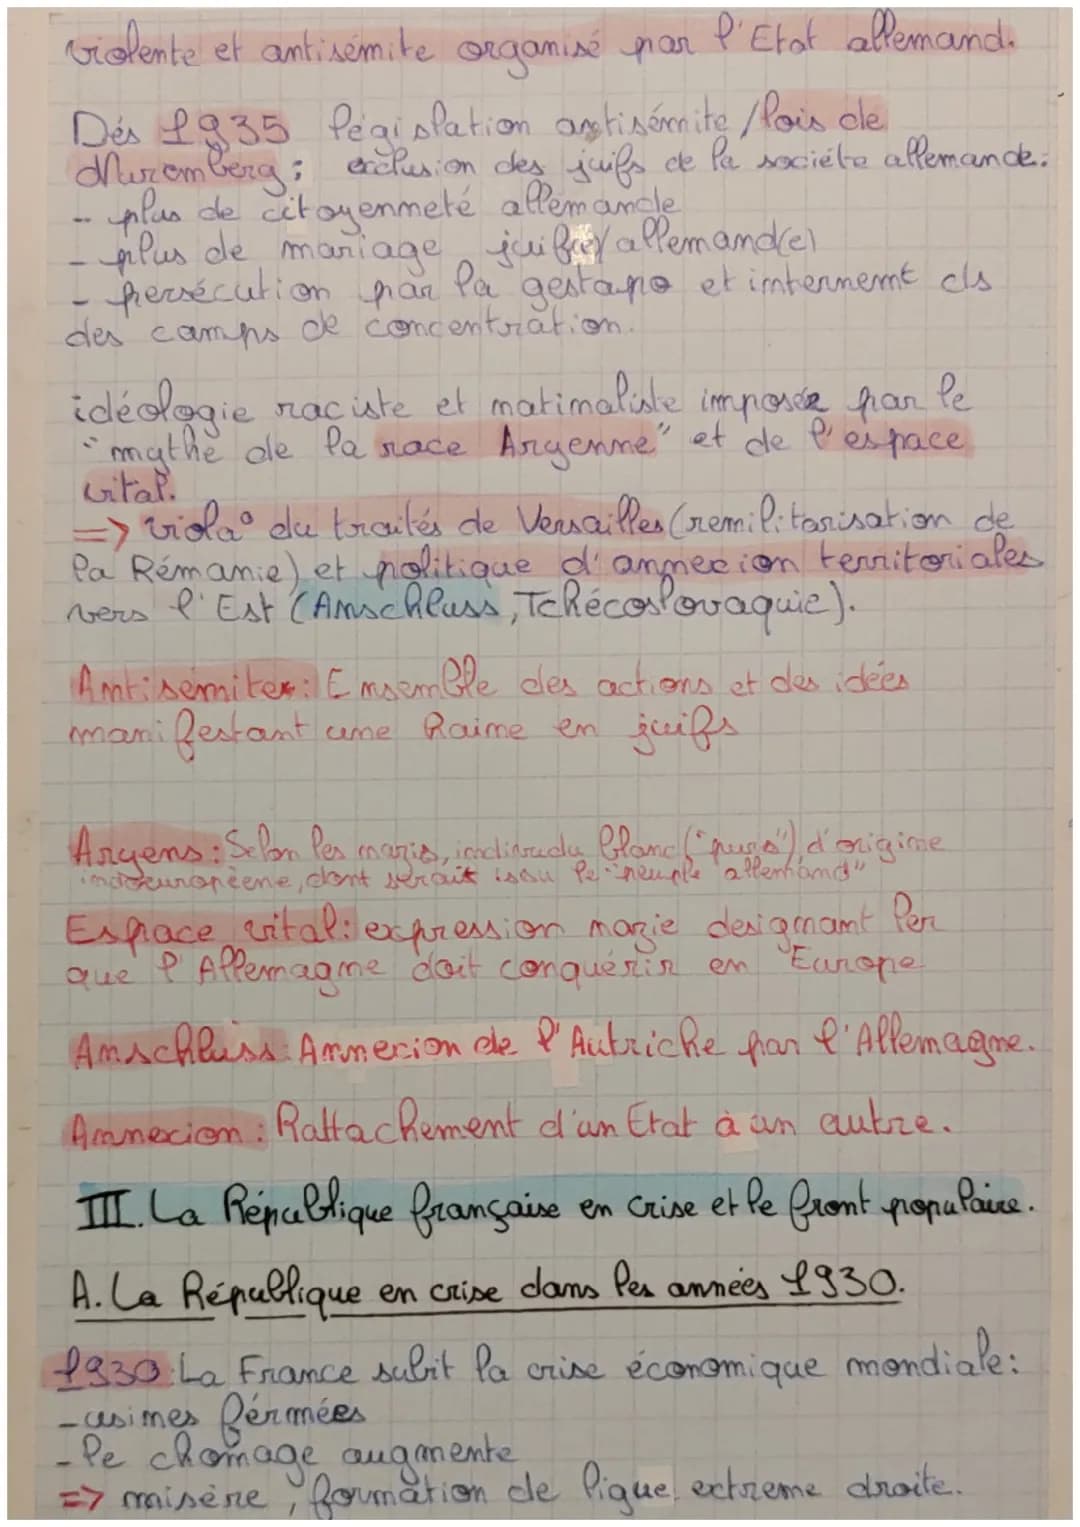 violente et antisémite organisé par l'Etat allemand.
Dés 1935 législation antisémite / lois de
Nuremberg : exclusion des juifs de la société allemande :
- plus de citoyenneté allemande
- plus de mariage juif(e)/allemand(e)
- persécution par la gestapo et internemt ds
des camps de concentration.
idéologie raciste et natinaliste imposée par le
"mythe de la race Aryenne" et de l'espace
vital.
=> viola° du traités de Versailles (remilitarisation de
la Rémanie) et politique d'annexion territoriales
vers l'Est (Anschluss, Tchécoslovaquie).
Antisémites : Ensemble des actions et des idées
manifestant une haine en juifs
Aryens : Selon les nazis, individu blanc ("purs") d'origine
indoeuropéene, dont serait issu le "peuple allemand"
Espace vital : expression nazie designant l'er
que l'Allemagne doit conquérir en Europe
Anschluss : Annexion de l'Autriche par l'Allemagne.
Annexion : Rattachement d'un Etat à un autre.
III. La République française en crise et le front populaire.
A. La République en crise dans les années 1930.
1930 : La France subit la crise économique mondiale :
- usines férmées
- le chomage augmente
=> misère, formation de ligue extreme droite.